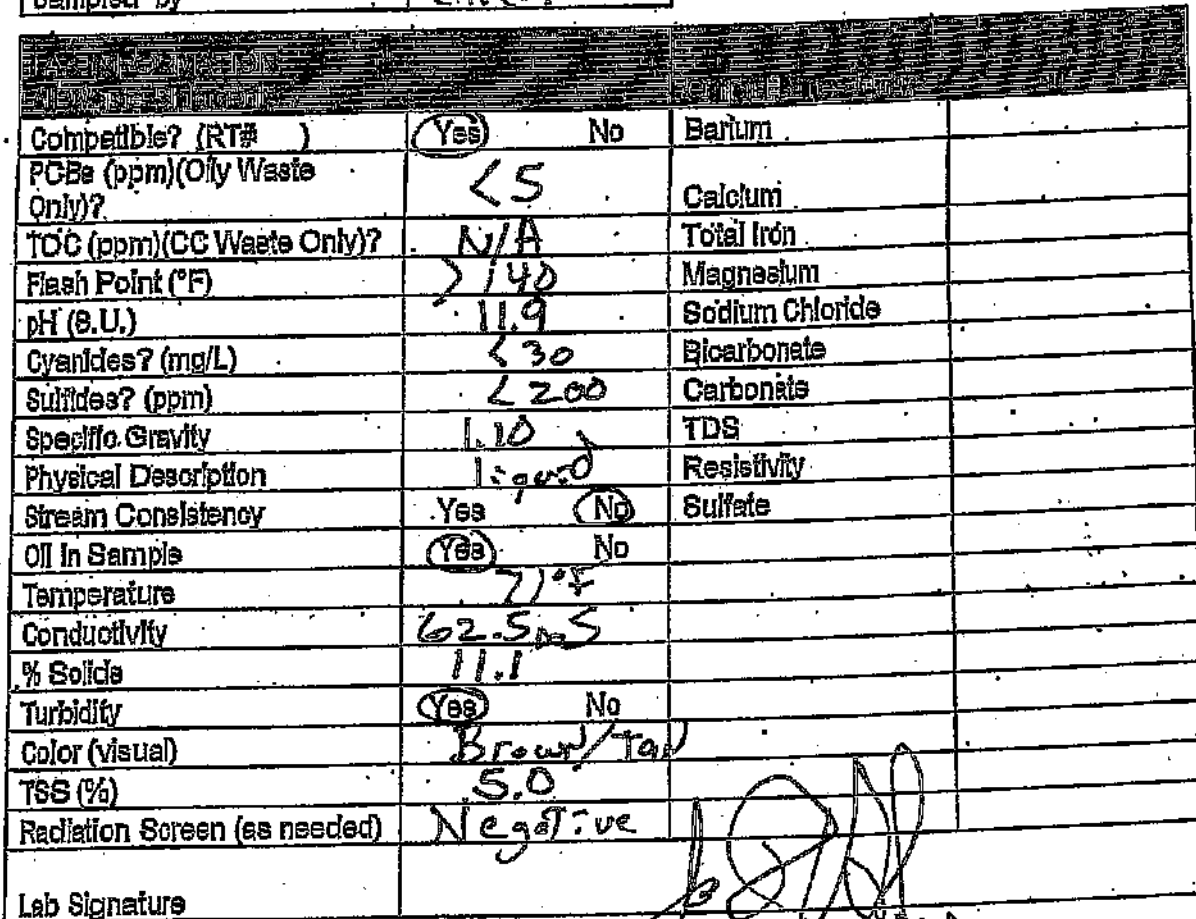 Sampled by
Compatible? (RT# ) Yes No Barium
PCBs (ppm)(Oily Waste Only)? <5 Calcium
TOC (ppm)(CC Waste Only)? N/A Total Iron
Flash Point (°F) >140 Magnesium
pH (S.U.) 11.9 Sodium Chloride
Cyanides? (mg/L) <30 Bicarbonate
Sulfides? (ppm) <200 Carbonate
Specific Gravity 1.10 TDS
Physical Description liquid Resistivity
Stream Consistency Yes No Sulfate
Oil In Sample Yes No
Temperature 71°F
Conductivity 62.5 mS
% Solids 11.1
Turbidity Yes No
Color (visual) Brown/Tan
TSS (%) 5.0
Radiation Screen (as needed) Negative
Lab Signature